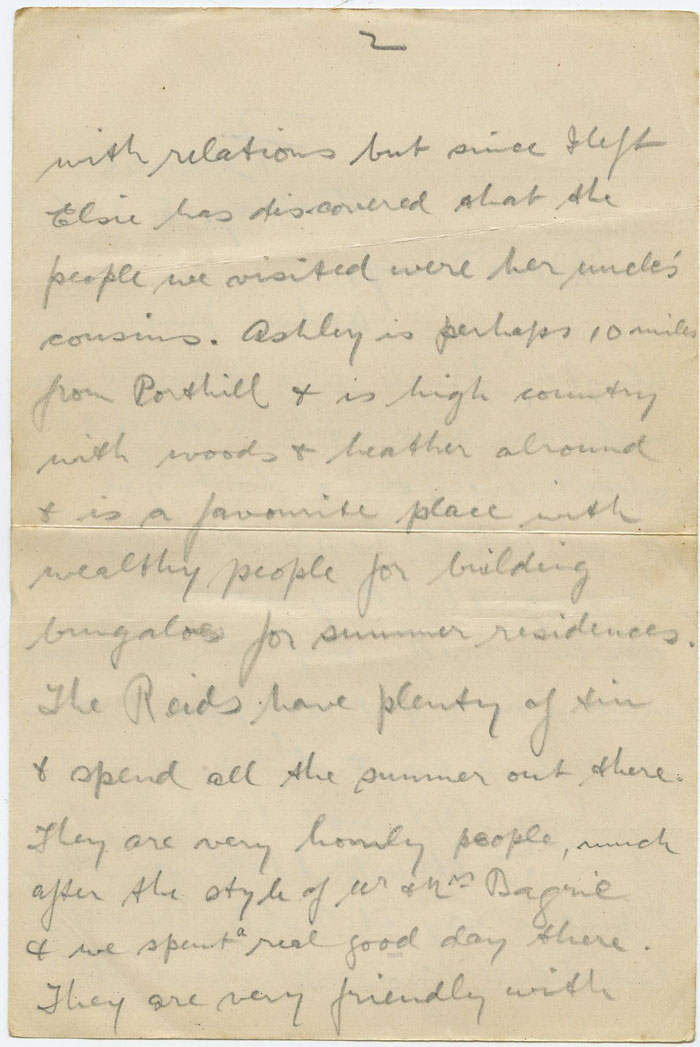 2
with relations but since I left
Elsie has discovered that the
people we visited were her uncle's
cousins. Ashley is perhaps 10 miles
from Porthill & is high country
with woods & heather alround
& is a favourite place with
wealthy people for building
bungaloes for summer residences.
The Reids have plenty of tin
& spend all the summer out there.
They are very homly people, much
after the style of Mr & Mrs Bagrie
& we spent a real good day there.
They are very friendly with